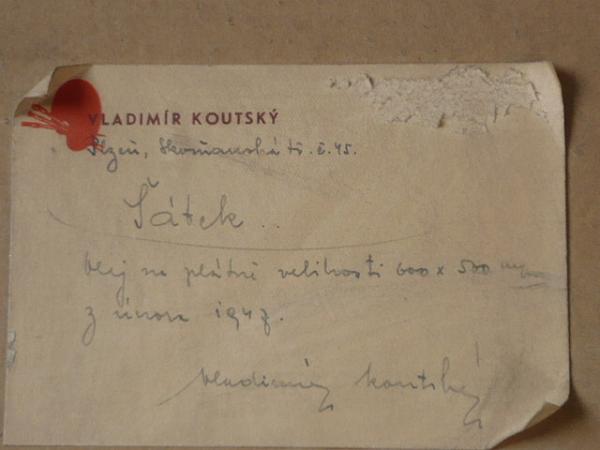 VLADIMÍR KOUTSKÝ
Plzeň, Skvrňanská tř. č. 45.
Šátek..
olej na plátně velikosti 600 x 500 mm
z února 1947.
Vladimír Koutský